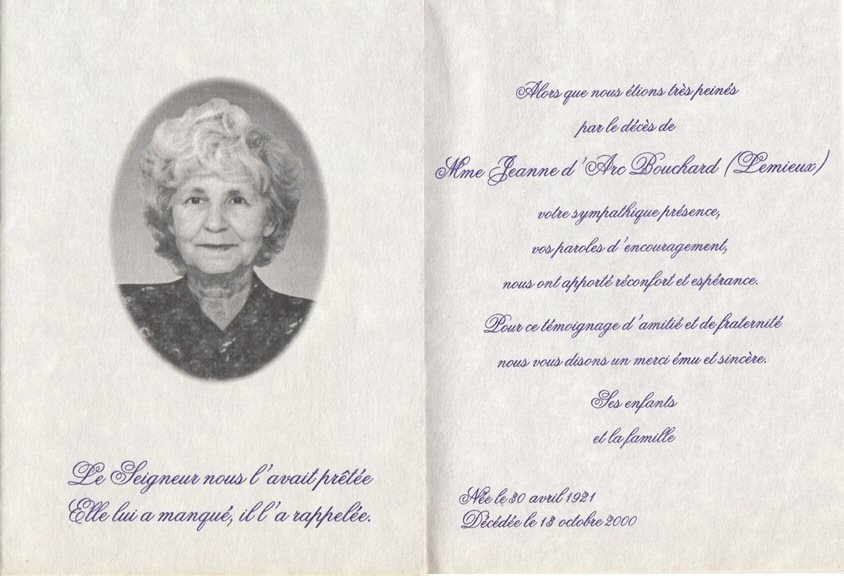 Le Seigneur nous l'avait prêtée
Elle lui a manqué, il l'a rappelée.
Alors que nous étions très peinés
par le décès de
Mme Jeanne d'Arc Bouchard (Lemieux)
votre sympathique présence,
vos paroles d'encouragement,
nous ont apporté réconfort et espérance.
Pour ce témoignage d'amitié et de fraternité
nous vous disons un merci ému et sincère.
Ses enfants
et la famille
Née le 30 avril 1921
Décédée le 13 octobre 2000